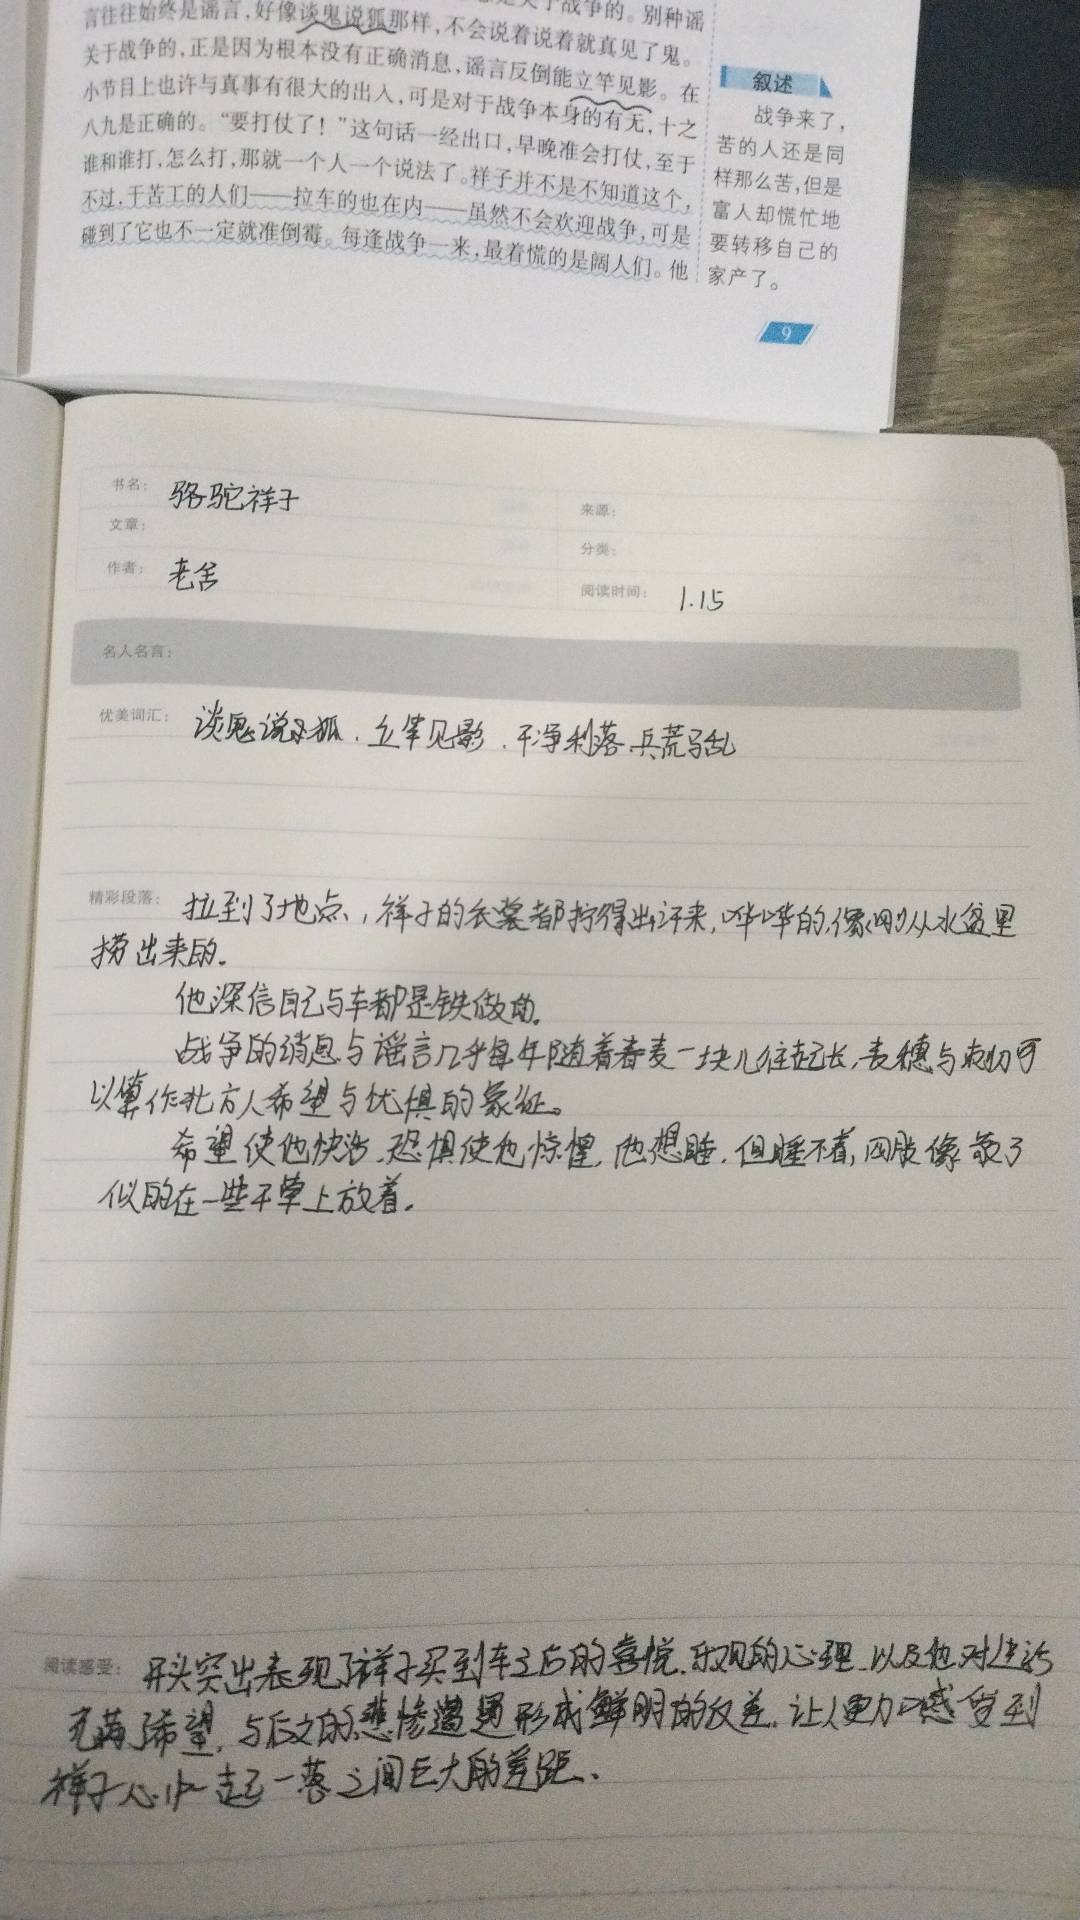 关于战争的。别种谣
言往往始终是谣言，好像谈鬼说狐那样，不会说着说着就真见了鬼。
关于战争的，正是因为根本没有正确消息，谣言反倒能立竿见影。在
小节目上也许与真事有很大的出入，可是对于战争本身的有无，十之
八九是正确的。“要打仗了！”这句话一经出口，早晚准会打仗，至于
谁和谁打，怎么打，那就一个人一个说法了。祥子并不是不知道这个，
不过，干苦工的人们——拉车的也在内——虽然不会欢迎战争，可是
碰到了它也不一定就准倒霉。每逢战争一来，最着慌的是阔人们。他
叙述
战争来了，
苦的人还是同
样那么苦，但是
富人却慌忙地
要转移自己的
家产了。
9
书名： 骆驼祥子
来源：
文章：
分类：
作者： 老舍
阅读时间： 1.15
名人名言：
优美词汇： 谈鬼说狐．立竿见影．干净利落．兵荒马乱
精彩段落： 拉到了地点，祥子的衣裳都拧得出汗来，哗哗的，像刚从水盆里
捞出来的。
他深信自己与车都是铁做的。
战争的消息与谣言几乎每年随着春麦一块儿往起长，麦穗与刺刀可
以算作北方人希望与忧惧的象征。
希望使他快活，恐惧使他惊惶，他想睡，但睡不着，四肢像散了
似的在一些干草上放着。
阅读感受： 开头突出表现了祥子买到车之后的喜悦、乐观的心理．以及他对生活
充满了希望，与后文的悲惨遭遇形成鲜明的反差．让人更加感受到
祥子心中一起一落之间巨大的差距．